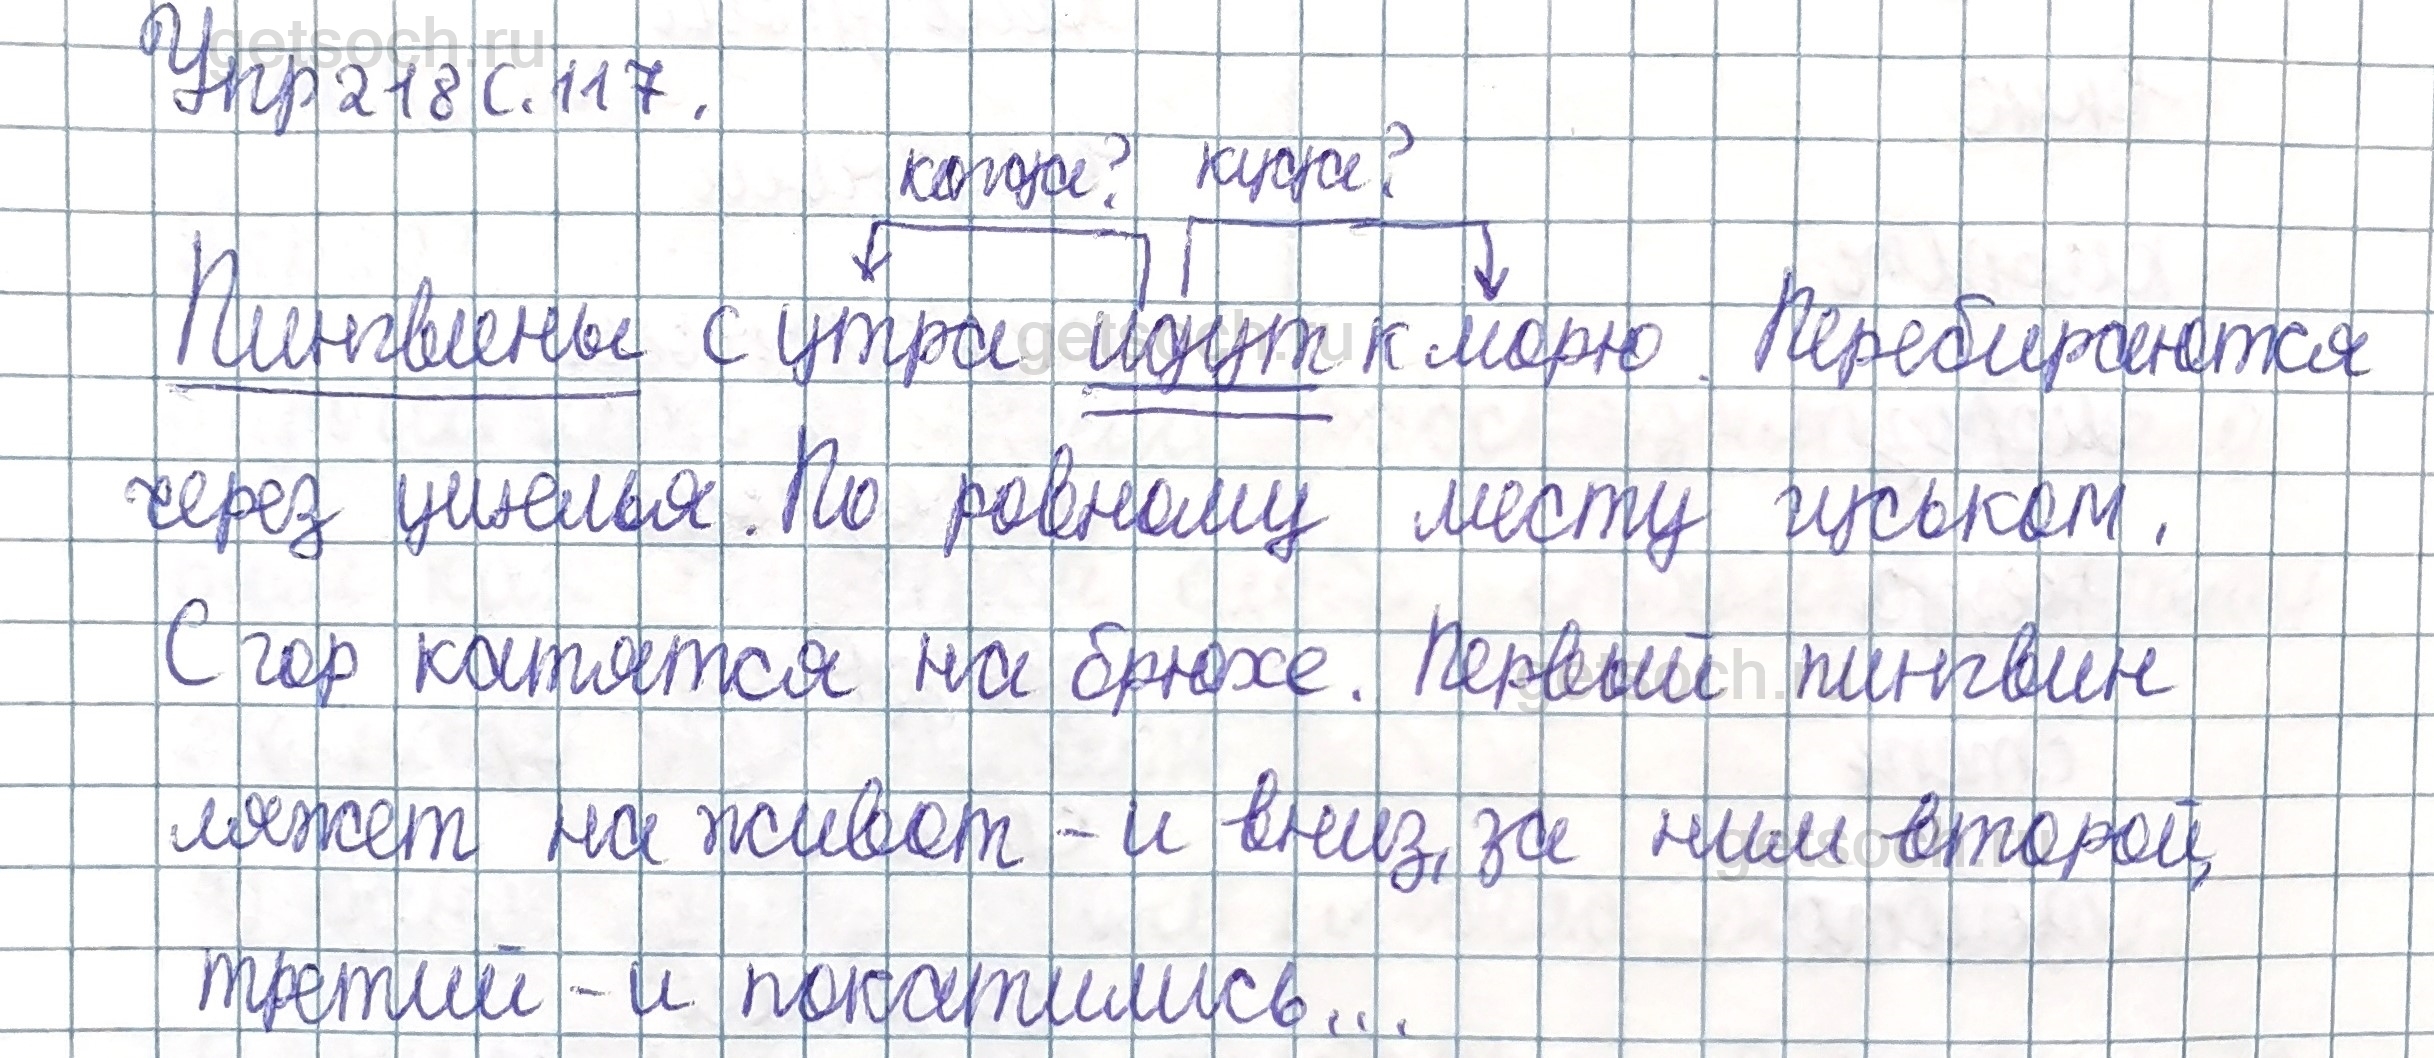 getsoch.ru
Упр 218 с. 117.
когда? куда?
Пингвины с утра идут к морю. Перебираются
getsoch.ru
через ущелья. По ровному месту гуськом.
С гор катятся на брюхе. Первый пингвин
getsoch.ru
ляжет на живот - и вниз, за ним второй,
getsoch.ru
третий - и покатились...